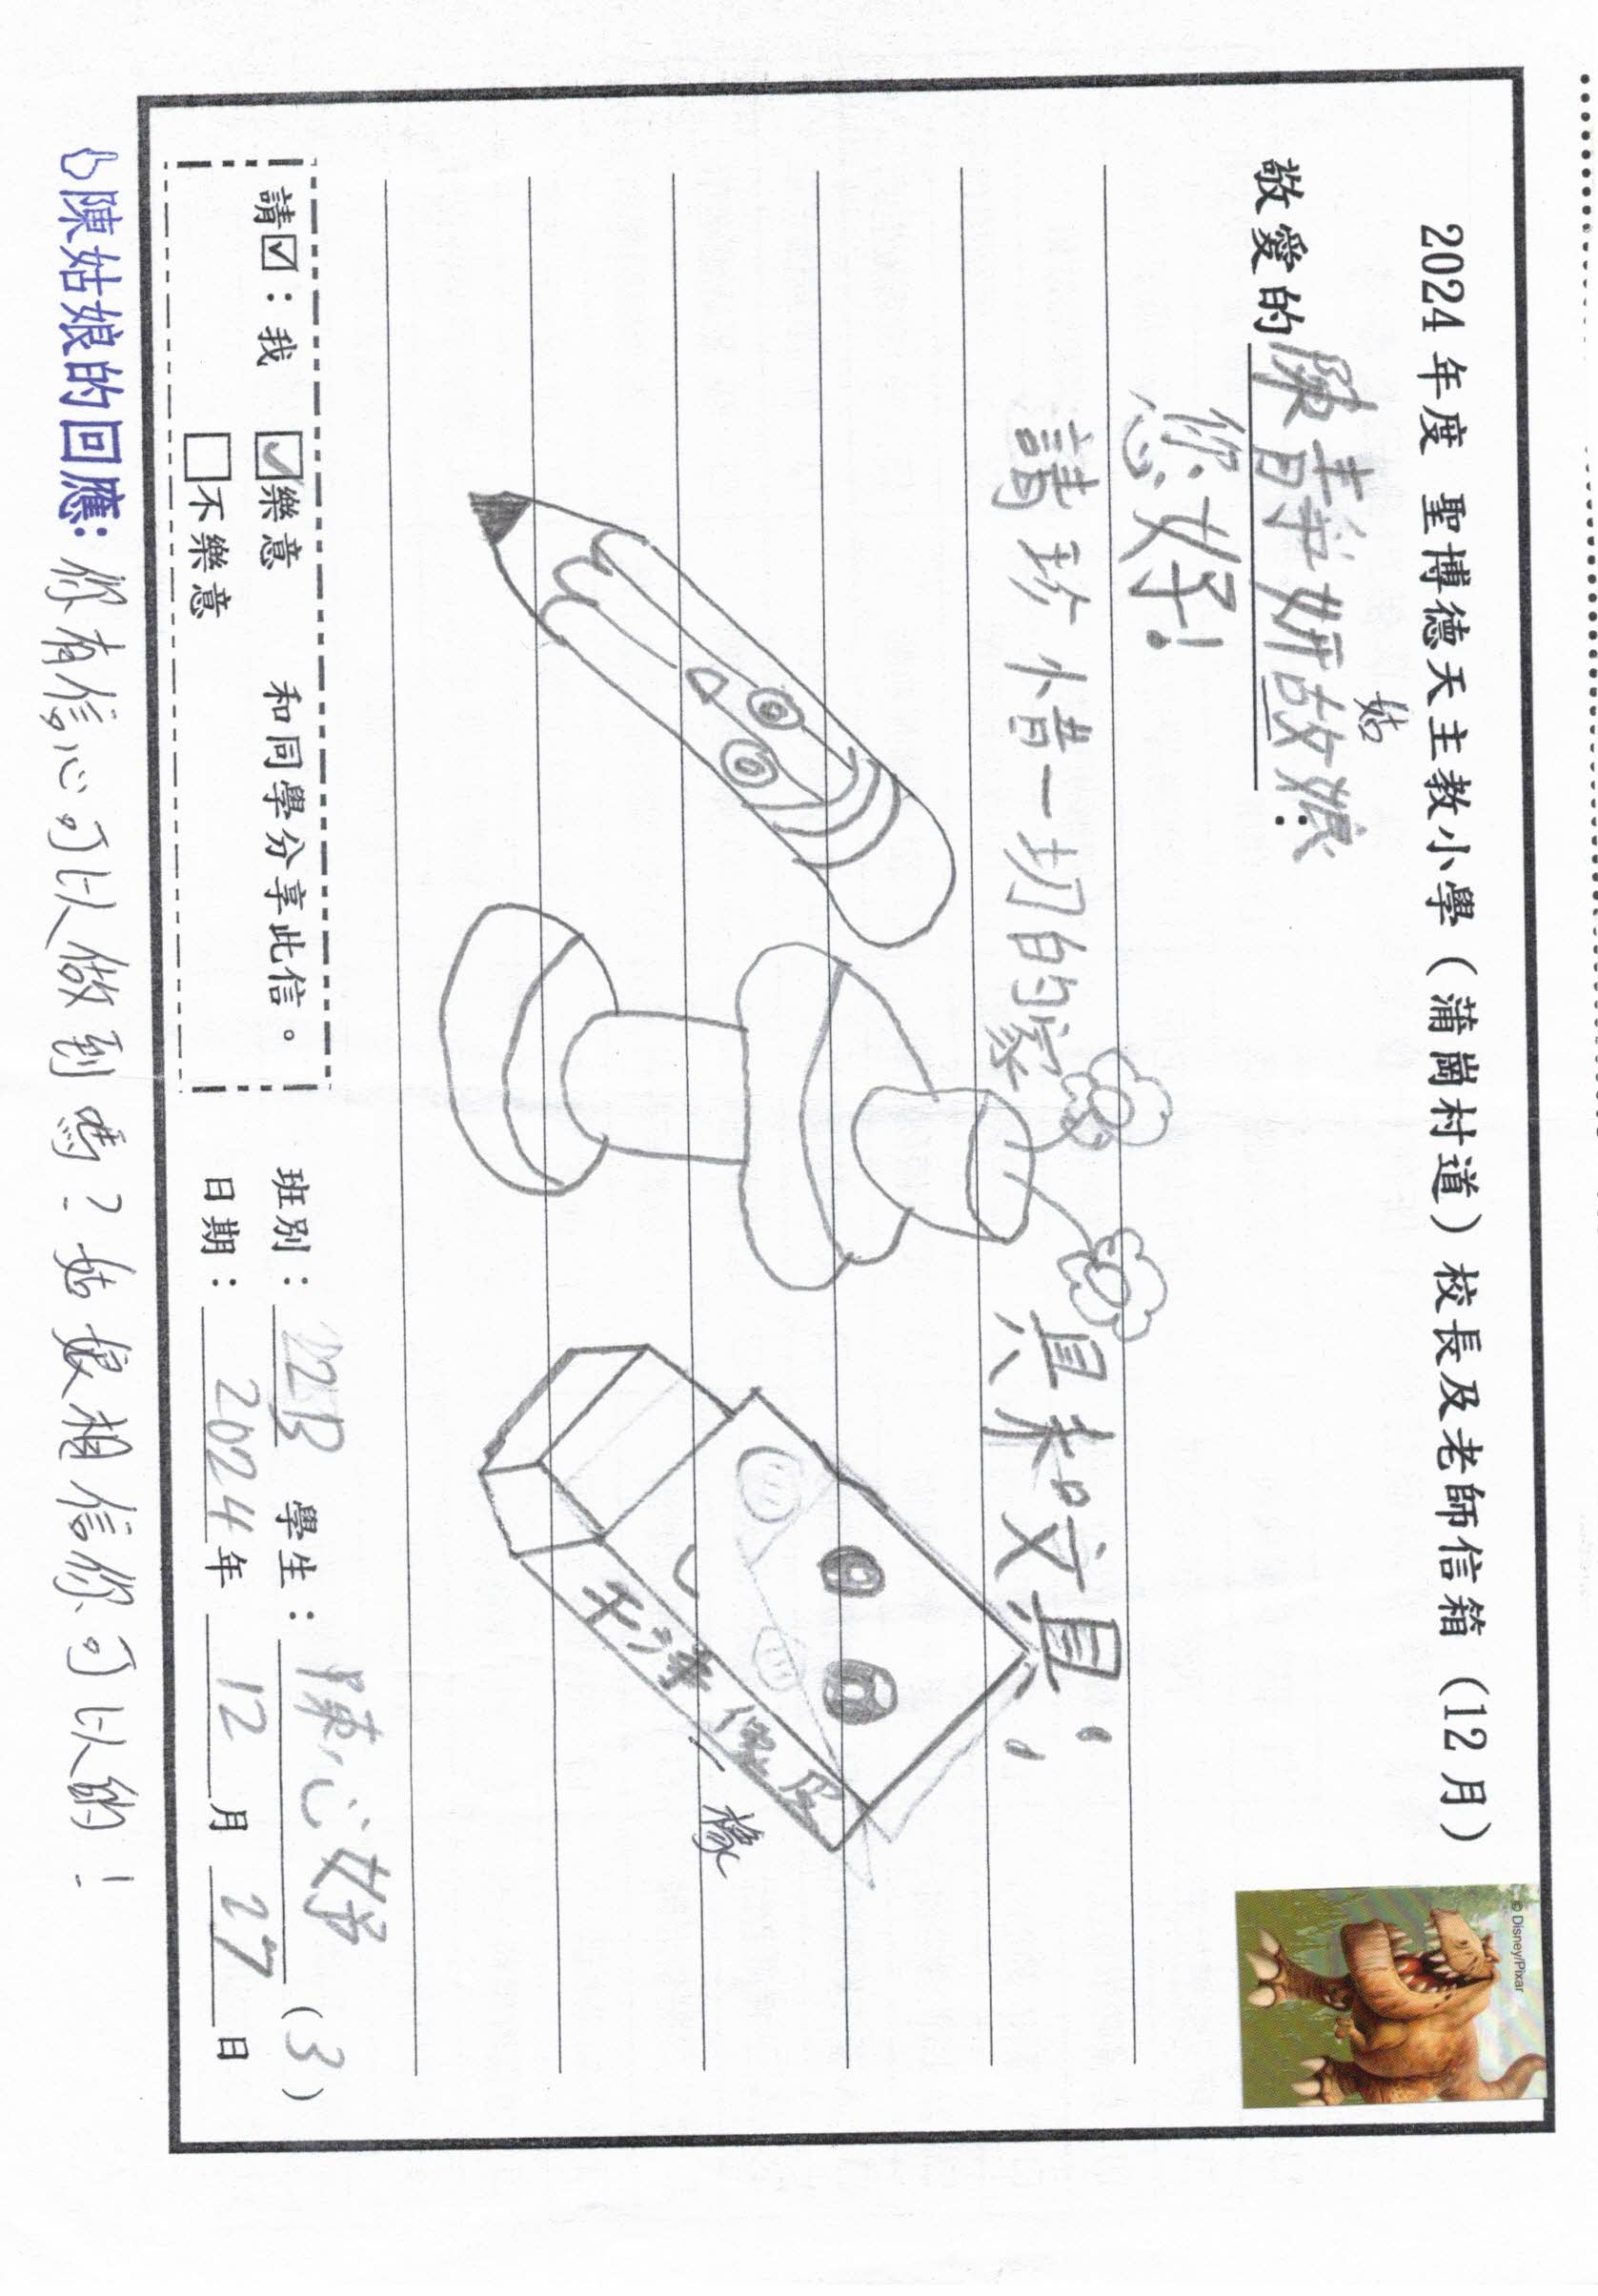 2024 年度 聖博德天主教小學（蒲崗村道）校長及老師信箱（12 月）
© Disney/Pixar
姑
敬愛的陳春妍故娘：
您好！
請珍惜一切的家具和文具；
橡
請☑：我 ☑樂意 和同學分享此信。
□不樂意
班別：2B 學生：陳心妤（3）
日期：2024年12月27日
陳姑娘的回應：你有信心可以做到嗎？姑娘相信你可以的！